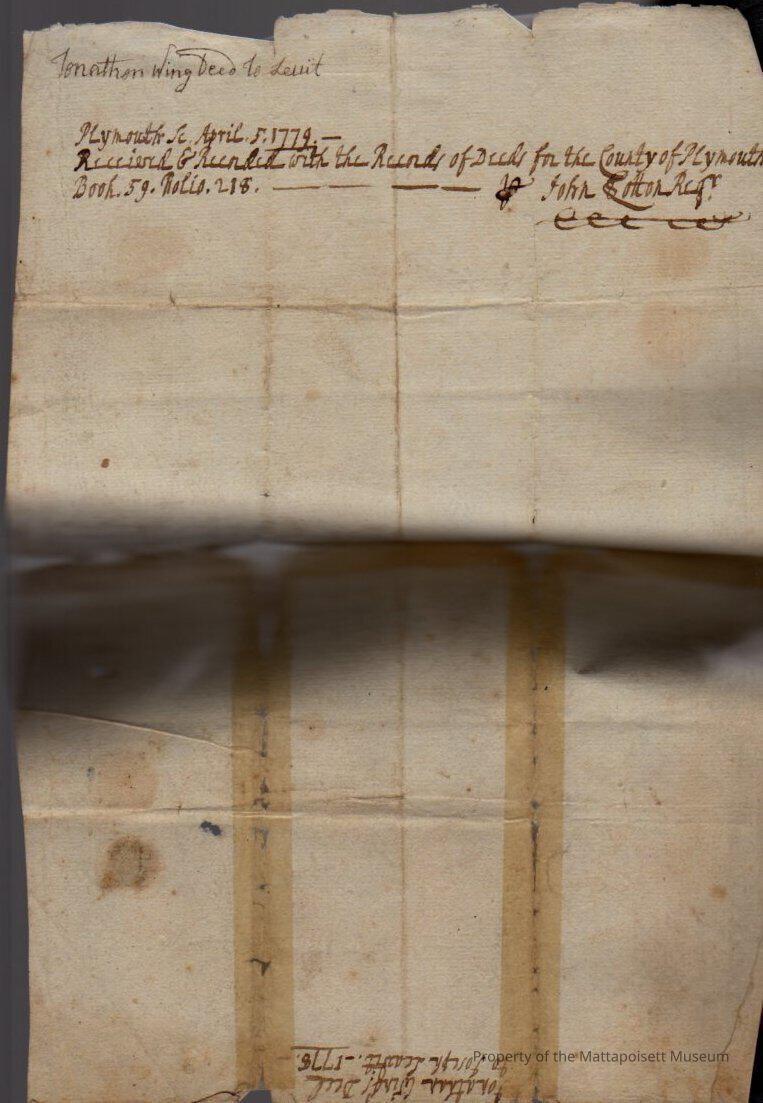 Jonathon Wing Deed to Levit
Plymouth Sc. April. 5. 1779. —
Received & Recorded with the Records of Deeds for the County of Plymouth
Book. 59. Folio. 218. — — — — John Cotton Regr
Jonathan Wing's Deed
to Joseph Leavitt. 1778.
Property of the Mattapoisett Museum